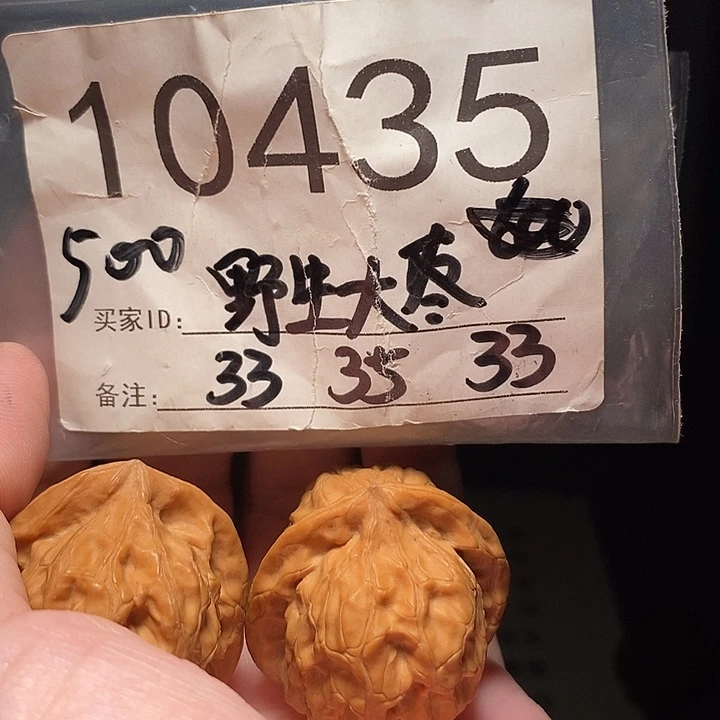 10435
500 野生大枣
买家ID:
备注: 33 35 33